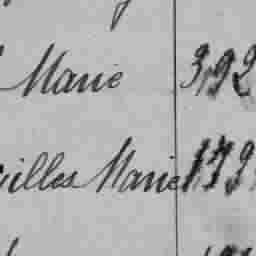 Marie 392
illes Marie 179